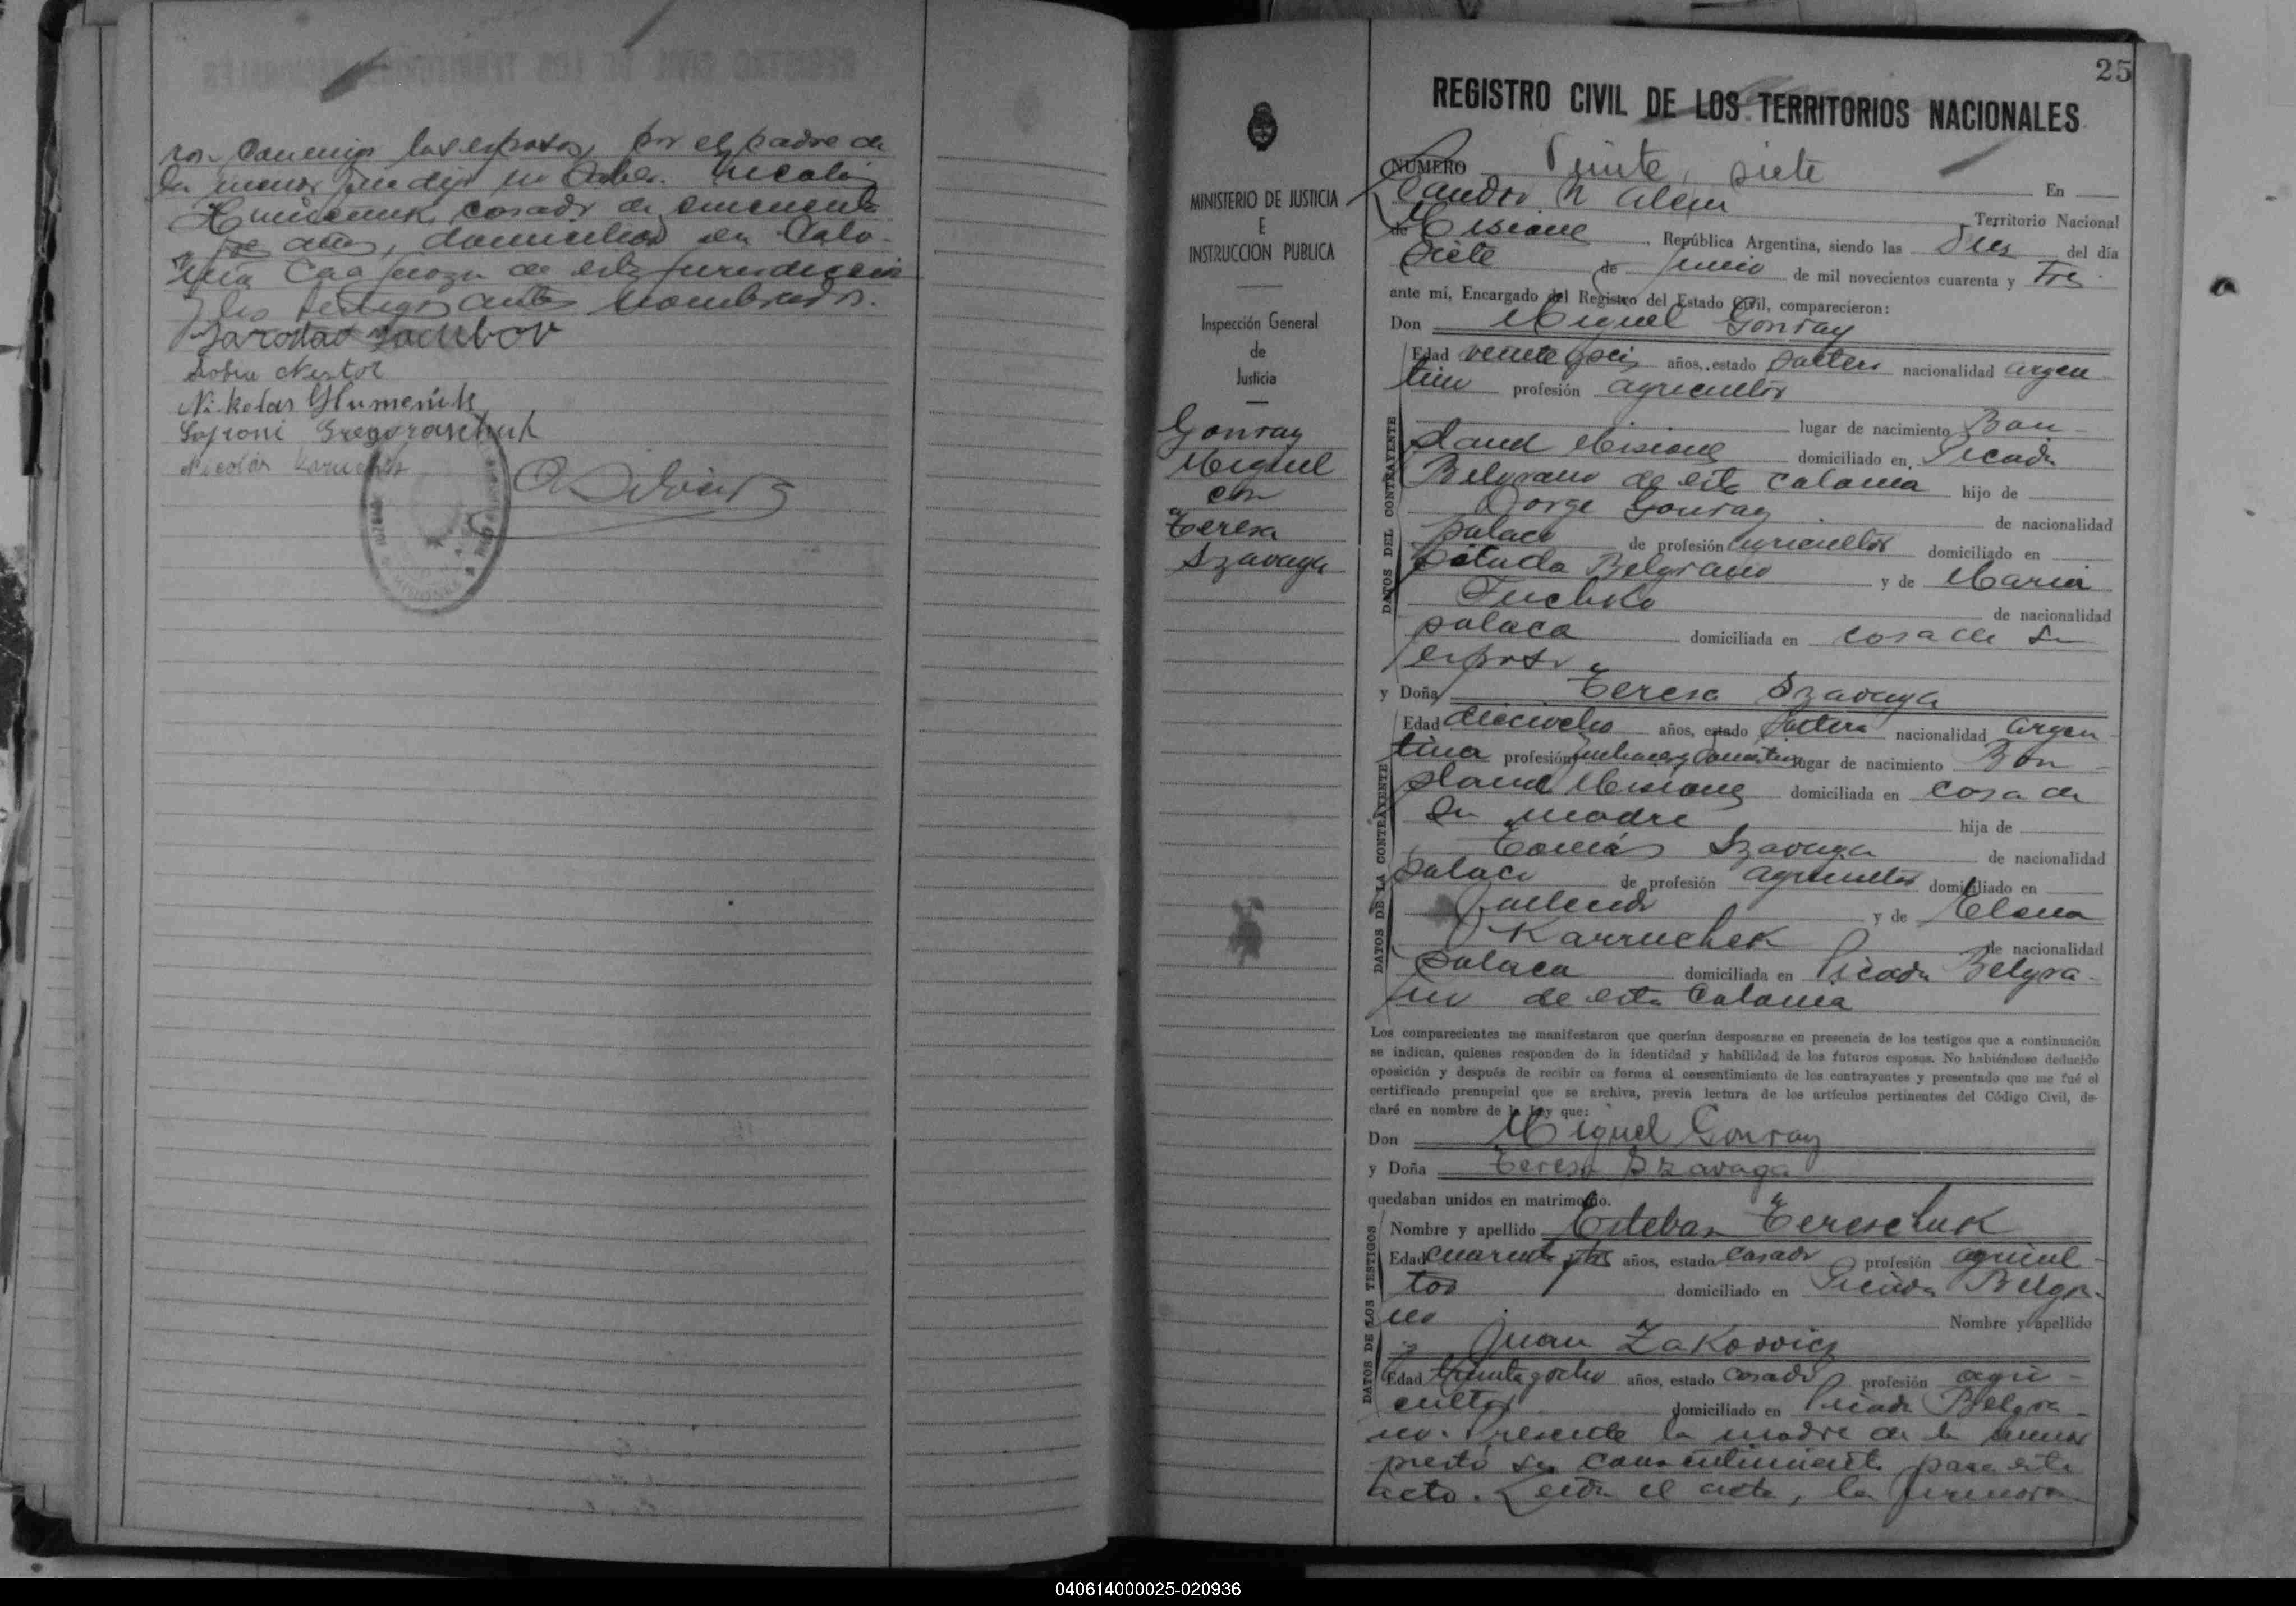 ron conmigo los esposos, por el padre de
la menor que dijo no saber. Nicolás
Humeniuk, casado de cincuenta
años, domiciliado en Colo-
nia Caa Guazu de esta jurisdicción
y los testigos antes nombrados.
Jaroslao
Sofia Nestor
Nikolas Humeniuk
Sofroni Gregoraschuk
Nicolás
25
REGISTRO CIVIL DE LOS TERRITORIOS NACIONALES
MINISTERIO DE JUSTICIA
E
INSTRUCCION PUBLICA
Inspección General
de
Justicia
Gonray
Miguel
con
Teresa
Szavaga
NUMERO Veinte siete
Leandro N Alem En
Territorio Nacional
de Misiones, República Argentina, siendo las diez del día
siete de junio de mil novecientos cuarenta y tres
ante mí, Encargado del Registro del Estado Civil, comparecieron:
Don Miguel Gonray
Edad veinte y seis años, estado soltero nacionalidad argen-
tino profesión agricultor
lugar de nacimiento Bon-
pland Misiones domiciliado en Picada
Belgrano de esta colonia hijo de
Jorge Gonray de nacionalidad
polaco de profesión agricultor domiciliado en
Picada Belgrano y de Maria
Fuchko de nacionalidad
polaca domiciliada en casa de su
esposo
DATOS DEL CONTRAYENTE
y Doña Teresa Szavaga
Edad dieciocho años, estado soltera nacionalidad argen-
tina profesión quehaceres domésticos lugar de nacimiento Bon-
pland Misiones domiciliada en casa de
su madre hija de
Tomás Szavaga de nacionalidad
polaco de profesión agricultor domiciliado en
fallecido y de Elena
Karruchek de nacionalidad
polaca domiciliada en Picada Belgra-
no de esta Colonia
DATOS DE LA CONTRAYENTE
Los comparecientes me manifestaron que querían desposarse en presencia de los testigos que a continuación
se indican, quienes responden de la identidad y habilidad de los futuros esposos. No habiéndose deducido
oposición y después de recibir en forma el consentimiento de los contrayentes y presentado que me fué el
certificado prenupcial que se archiva, previa lectura de los artículos pertinentes del Código Civil, de-
claré en nombre de la Ley que:
Don Miguel Gonray
y Doña Teresa Szavaga
quedaban unidos en matrimonio.
Nombre y apellido Esteban Tereschuk
Edad cuarenta y tres años, estado casado profesión agricul-
tor domiciliado en Picada Belgra-
no Nombre y apellido
Juan Zakovicz
Edad treinta y ocho años, estado casado profesión agri-
cultor domiciliado en Picada Belgra-
no. Presente la madre de la menor
prestó su consentimiento para este
acto. Leída el acta, la firmaron
DATOS DE LOS TESTIGOS
040614000025-020936